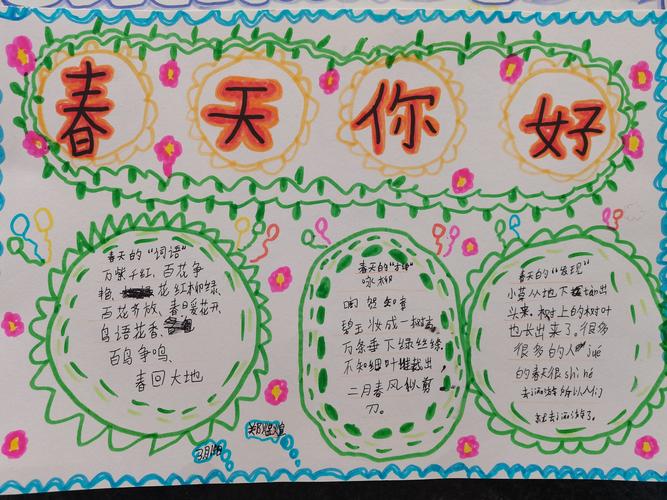 春天你好
春天的“词语”
万紫千红、百花争
艳、花红柳绿、
百花齐放、春日暖花开、
鸟语花香、
百鸟争鸣、
春回大地
春天的“诗”
咏柳
唐 贺知章
碧玉妆成一树高，
万条垂下绿丝绦。
不知细叶谁裁出，
二月春风似剪
刀。
春天的“发现”
小草从地下钻出
头来，树上的树叶
也长出来了。很多
很多的人jué
的春天很shì hé
去cai游所以人们
就去cai游了。
3月